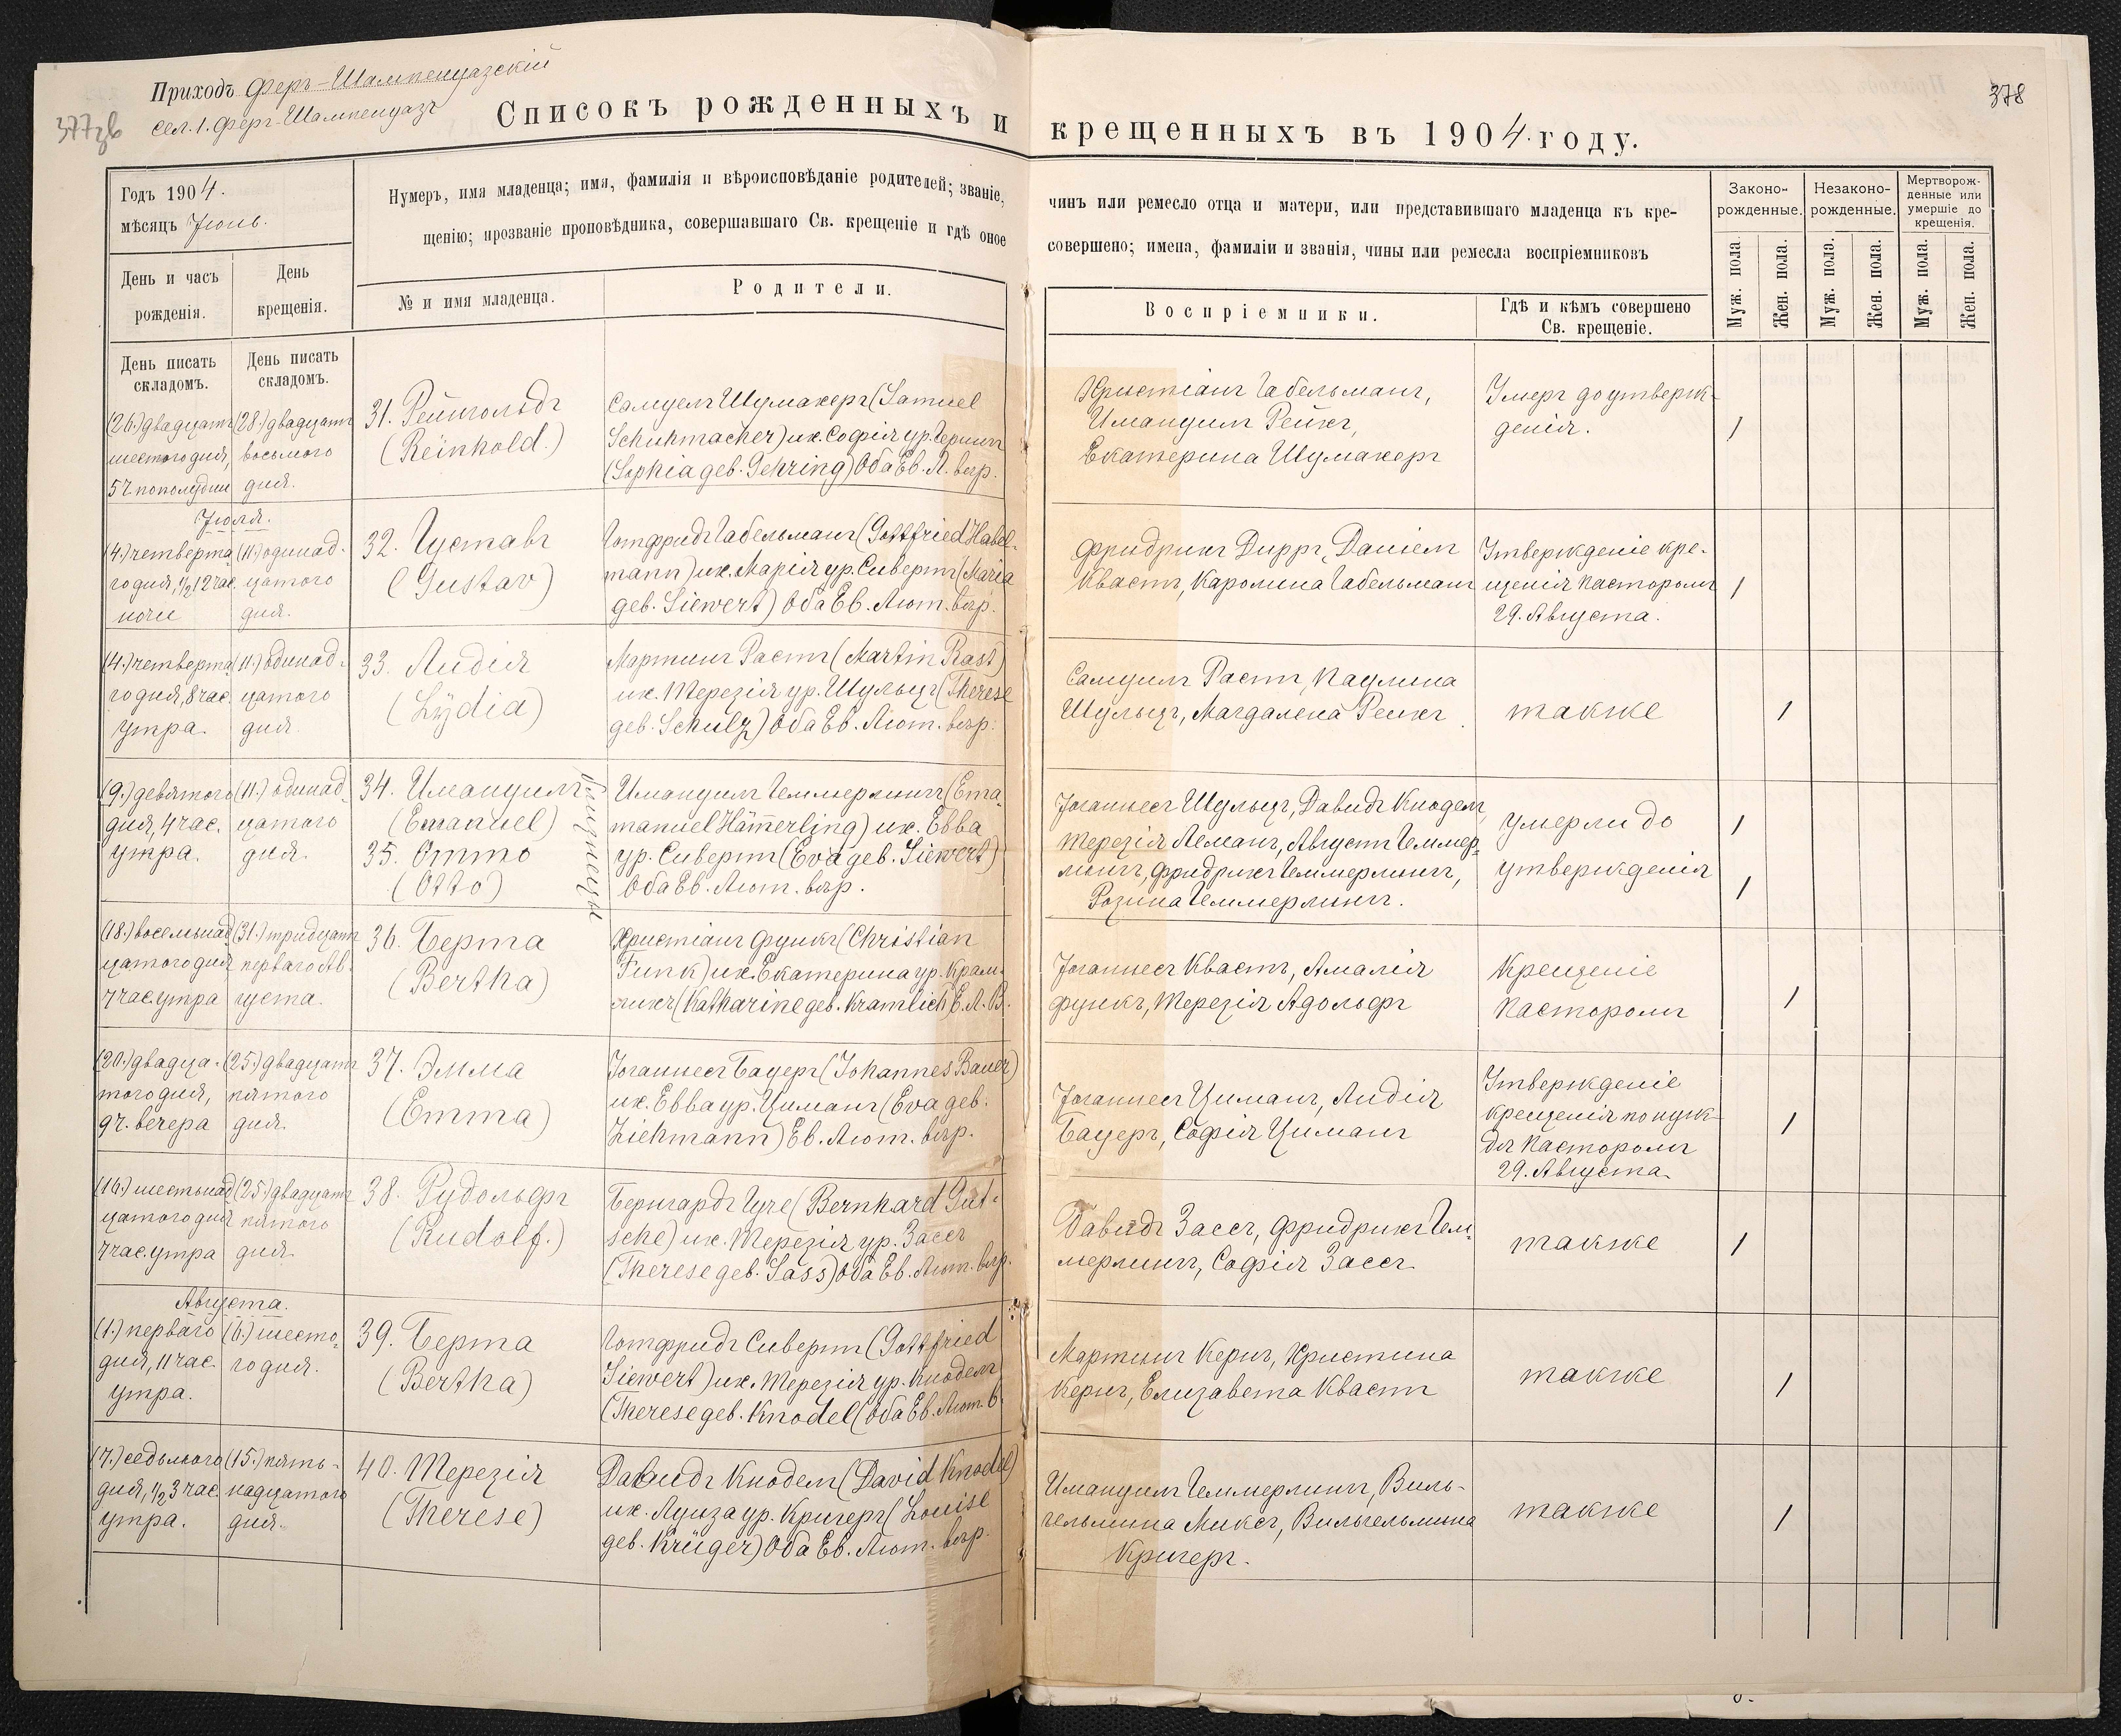 377об
Приходъ Феръ-Шампенуазскій
сел. 1. Феръ-Шампенуазъ
Списокъ рожденныхъ и крещенныхъ въ 1904. году.
378
Годъ 1904.
мѣсяцъ Іюнь.
Нумеръ, имя младенца; имя, фамилія и вѣроисповѣданіе родителей; званіе,
щенію; прозваніе проповѣдника, совершавшаго Св. крещеніе и гдѣ оное
чинъ или ремесло отца и матери, или представившаго младенца къ кре-
совершено; имена, фамиліи и званія, чины или ремесла воспріемниковъ
День и часъ
рожденія.
День
крещенія.
№ и имя младенца.
Родители.
Воспріемники.
Гдѣ и кѣмъ совершено
Св. крещеніе.
Законо-
рожденные.
Незаконо-
рожденные.
Мертворож-
денные или
умершіе до
крещенія.
Муж. пола.
Жен. пола.
Муж. пола.
Жен. пола.
Муж. пола.
Жен. пола.
День писать
складомъ.
День писать
складомъ.
(26.) двадцать
шестого дня,
5 ч пополудни
(28.) двадцать
восьмого
дня.
31. Рейнгольдъ
(Reinhold.)
Самуелъ Шумахеръ (Samuel
Schuhmacher) иж. Софія ур. Герингъ
(Sophia geb. Gehring) Оба Ев. Л. вѣр.
Христіанъ Габельманъ,
Имануилъ Рейхъ,
Екатерина Шумахеръ
Умеръ до утверж-
денія.
1
Іюля.
(4.) четверта
го дня, 1/2 12 час.
ночи
(11.) одинад-
цатого
дня.
32. Густавъ
(Gustav)
Готфридъ Габельманъ (Gottfried Habel-
mann) иж. Марія ур. Сивертъ (Maria
geb. Siewert) Оба Ев. Лют. вѣр.
Фридрихъ Дирръ, Даніелъ
Квастъ, Каролина Габельманъ
Утвержденіе кре-
щенія Пасторомъ
29. Августа.
1
(4.) четверта
го дня, 8 час.
утра.
(11.) одинад-
цатого
дня
33. Лидія
(Lydia)
Мартинъ Растъ (Martin Rast)
иж. Терезія ур. Шульцъ (Therese
geb. Schulz) Оба Ев. Лют. вѣр.
Самуилъ Растъ, Паулина
Шульцъ, Магдалена Рейхъ
также
1
(9.) девятого
дня, 4 час.
утра.
(11.) одинад-
цатого
дня.
34. Имануилъ
(Emanuel)
35. Отто
(Otto)
близнецы
Имануилъ Геммерлингъ (Ema-
manuel Hämerling) иж. Евва
ур. Сивертъ (Eva geb. Siewert)
Оба Ев. Лют. вѣр.
Іоганнесъ Шульцъ, Давидъ Кнодель,
Терезія Леманъ, Августъ Геммер-
лингъ, Фридрихъ Геммерлингъ,
Розина Геммерлингъ.
умерли до
утвержденія
1
1
(18.) восемьнад
цатого дня
7 час. утра
(31.) тридцать
перваго Ав-
густа.
36. Берта
(Bertha)
Христіанъ Функъ (Christian
Funk) иж. Екатерина ур. Крам-
лихъ (Katharine geb. Kramlich) Е. Л. В.
Іоганнесъ Квастъ, Амалія
Функъ, Терезія Адольфъ
Крещеніе
Пасторомъ
1
(20.) двадца-
того дня,
9 ч. вечера
(25.) двадцать
пятого
дня.
37. Эмма
(Emma)
Іоганнесъ Бауеръ (Johannes Bauer)
иж. Евва ур. Циманъ (Eva geb.
Ziehmann) Ев. Лют. вѣр.
Іоганнесъ Циманъ, Лидія
Бауеръ, Софія Циманъ
Утвержденіе
Крещенія по нуж-
дѣ Пасторомъ
29. Августа.
1
(16.) шестьнад
цатого дня
7 час. утра
(25.) двадцать
пятого
дня.
38. Рудольфъ
(Rudolf.)
Бернгардъ Гуче (Bernhard Gut-
sche) иж. Терезія ур. Зассъ
(Therese geb. Sass) Оба Ев. Лют. вѣр.
Давидъ Зассъ, Фридрихъ Гем-
мерлингъ, Софія Зассъ
также
1
Августа.
(1.) перваго
дня, 11 час.
утра.
(6.) шесто-
го дня.
39. Берта
(Bertha)
Готфридъ Сивертъ (Gottfried
Siewert) иж. Терезія ур. Кнодель
(Therese geb. Knodel (Оба Ев. Лют. в.
Мартинъ Кернъ, Христина
Кернъ, Елизавета Квастъ
также
1
(7.) седьмого
дня, 1/2 3 час.
утра.
(15.) пять-
надцатого
дня.
40. Терезія
(Therese)
Давидъ Кнодель (David Knodel)
иж. Луиза ур. Кригеръ (Louise
geb. Krüger) Оба Ев. Лют. вѣр.
Имануилъ Геммерлингъ, Виль-
гельмина Миксъ, Вильгельмина
Кригеръ.
также
1